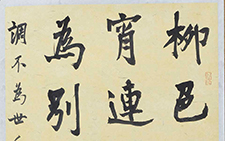 柳邑
宵連
為別
調不為世